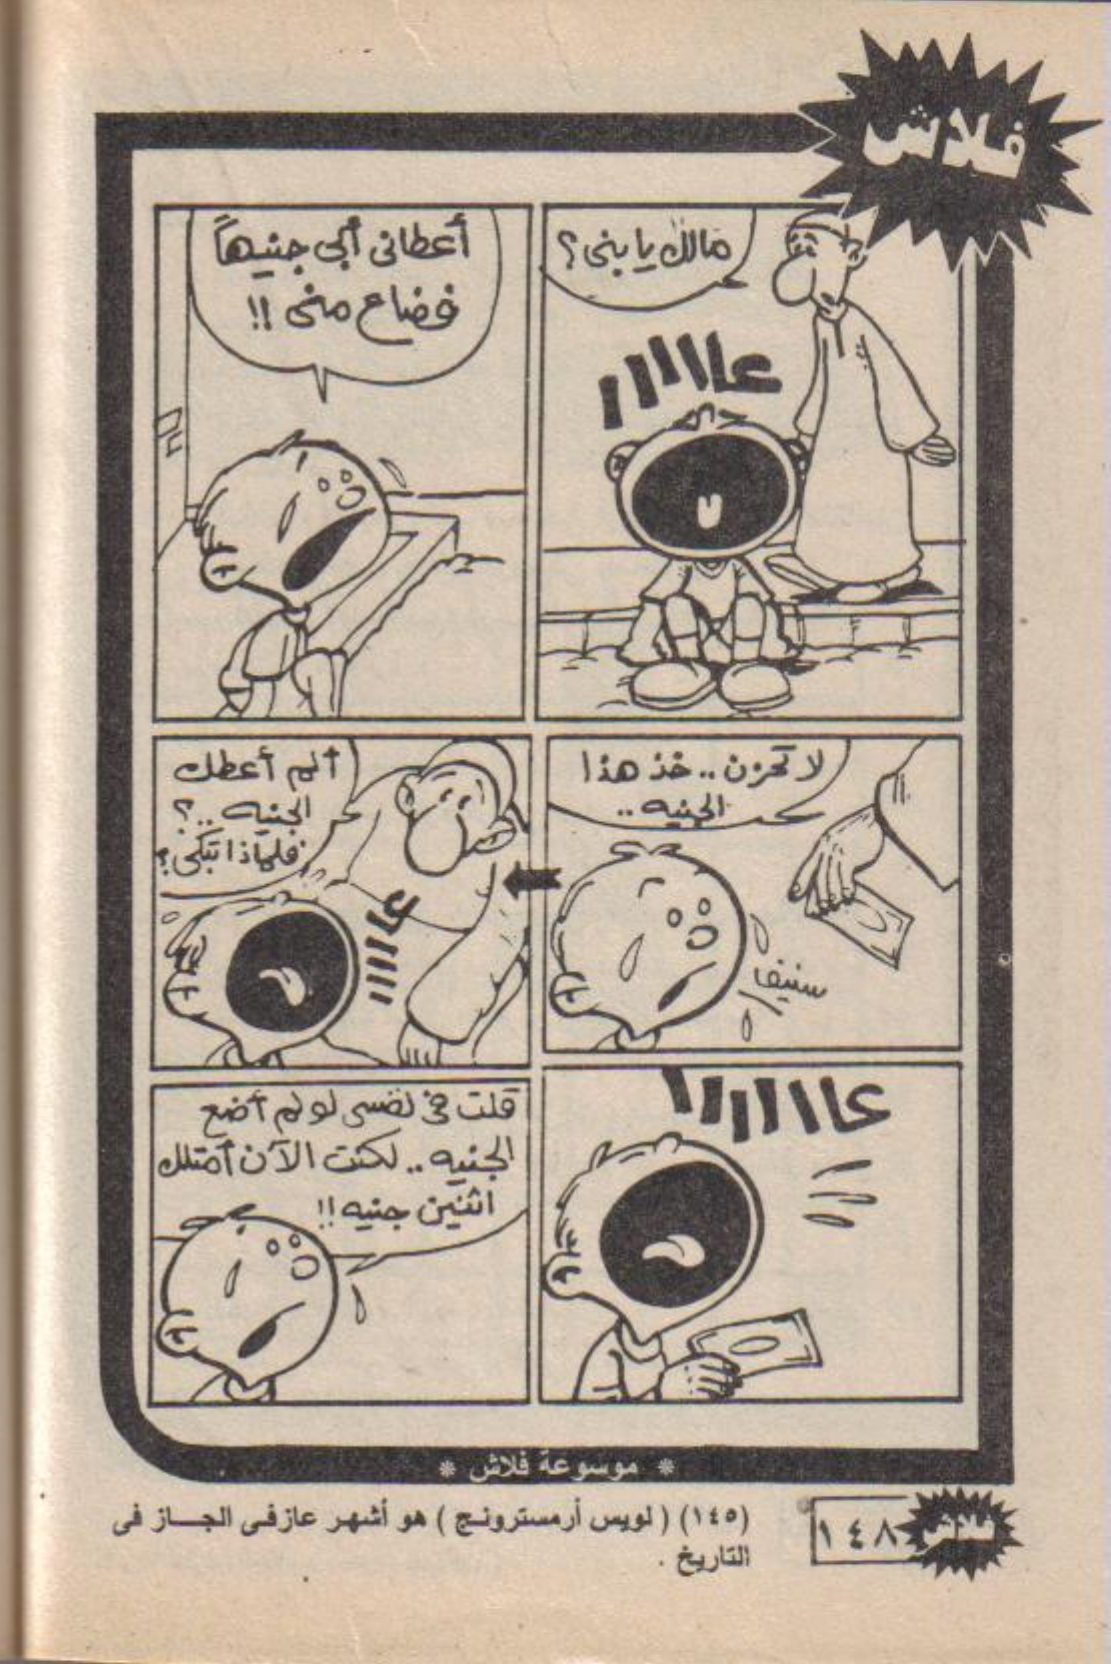 فلاش
مالك يا بنى؟
عااااا
أعطانى أبى جنيهاً
فضاع منى !!
لا تحزن .. خذ هذا
الجنيه ..
سنيف
ألم أعطك
الجنيه ..؟
فلماذا تبكى؟
عااااا
عاااااا
قلت فى نفسى لو لم أضع
الجنيه .. لكنت الآن أمتلك
اثنين جنيه !!
* موسوعة فلاش *
(١٤٥) ( لويس أرمسترونج ) هو أشهر عازفى الجاز فى
التاريخ .
١٤٨
فلاش